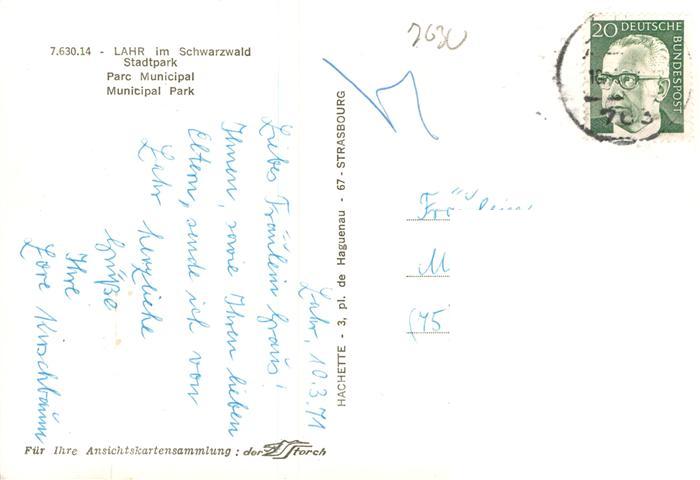 7.630.14 - LAHR im Schwarzwald
Stadtpark
Parc Municipal
Municipal Park
Lahr, 10.3.71
Liebes Fräulein
Ihnen, sowie Ihren lieben
Eltern, sende ich von
Lahr herzliche
Grüße
Ihre
Lore Kirschbaum
Für Ihre Ansichtskartensammlung : der Storch
HACHETTE - 3, pl. de Haguenau - 67 - STRASBOURG
7630
20 DEUTSCHE
BUNDESPOST
Fräulein
M
(75